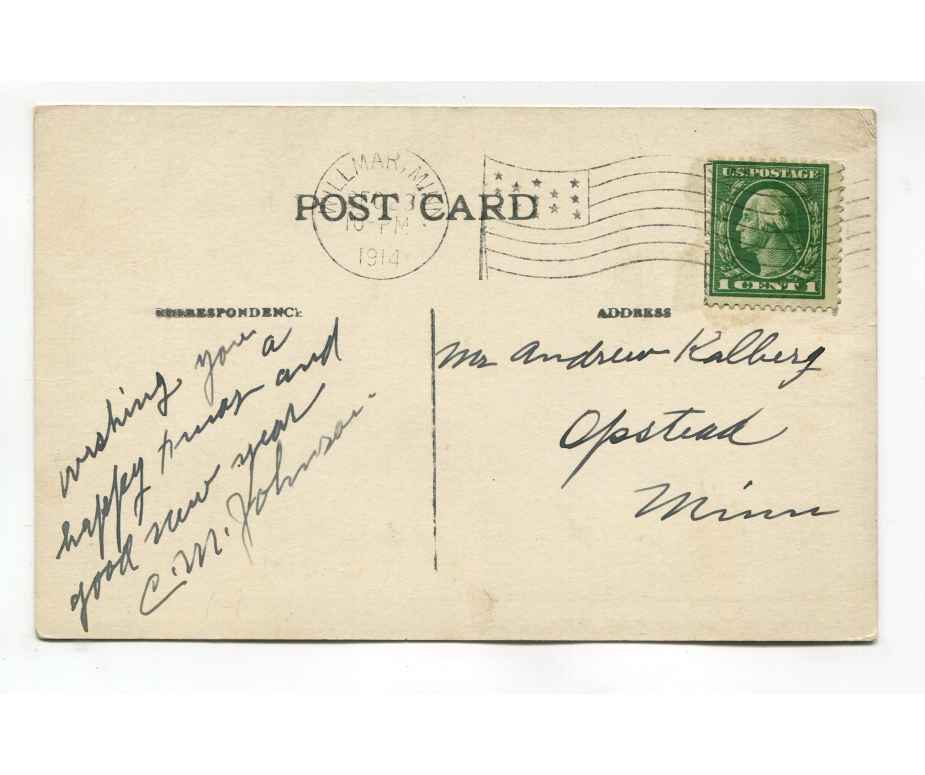 WILLMAR, MINN.
POST CARD
10-PM
1914
U.S. POSTAGE
1 CENT 1
CORRESPONDENCE
ADDRESS
wishing you
a
happy xmas and
good new year
C. M. Johnson.
Mr Andrew Kalberg
Opstead
Minn